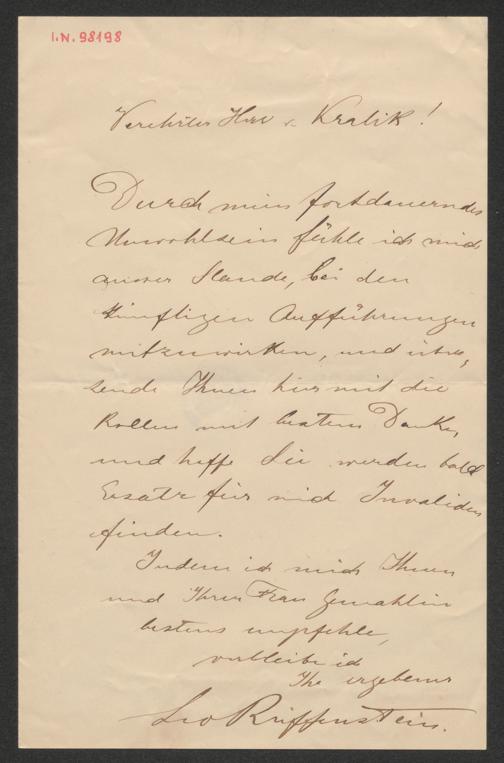 I.N. 98198
Verehrter Herr v. Kralik!
Durch mein fortdauerndes
Unwohlsein fühle ich mich
ausser Stande, bei den
künftigen Aufführungen
mitzuwirken, und über-
sende Ihnen hiermit die
Rollen mit bestem Danke,
und hoffe Sie werden bald
Ersatz für mich Invaliden
finden.
Indem ich mich Ihnen
und Ihrer Frau Gemahlin
bestens empfehle,
verbleibe ich
Ihr ergebener
Leo Reiffenstein.